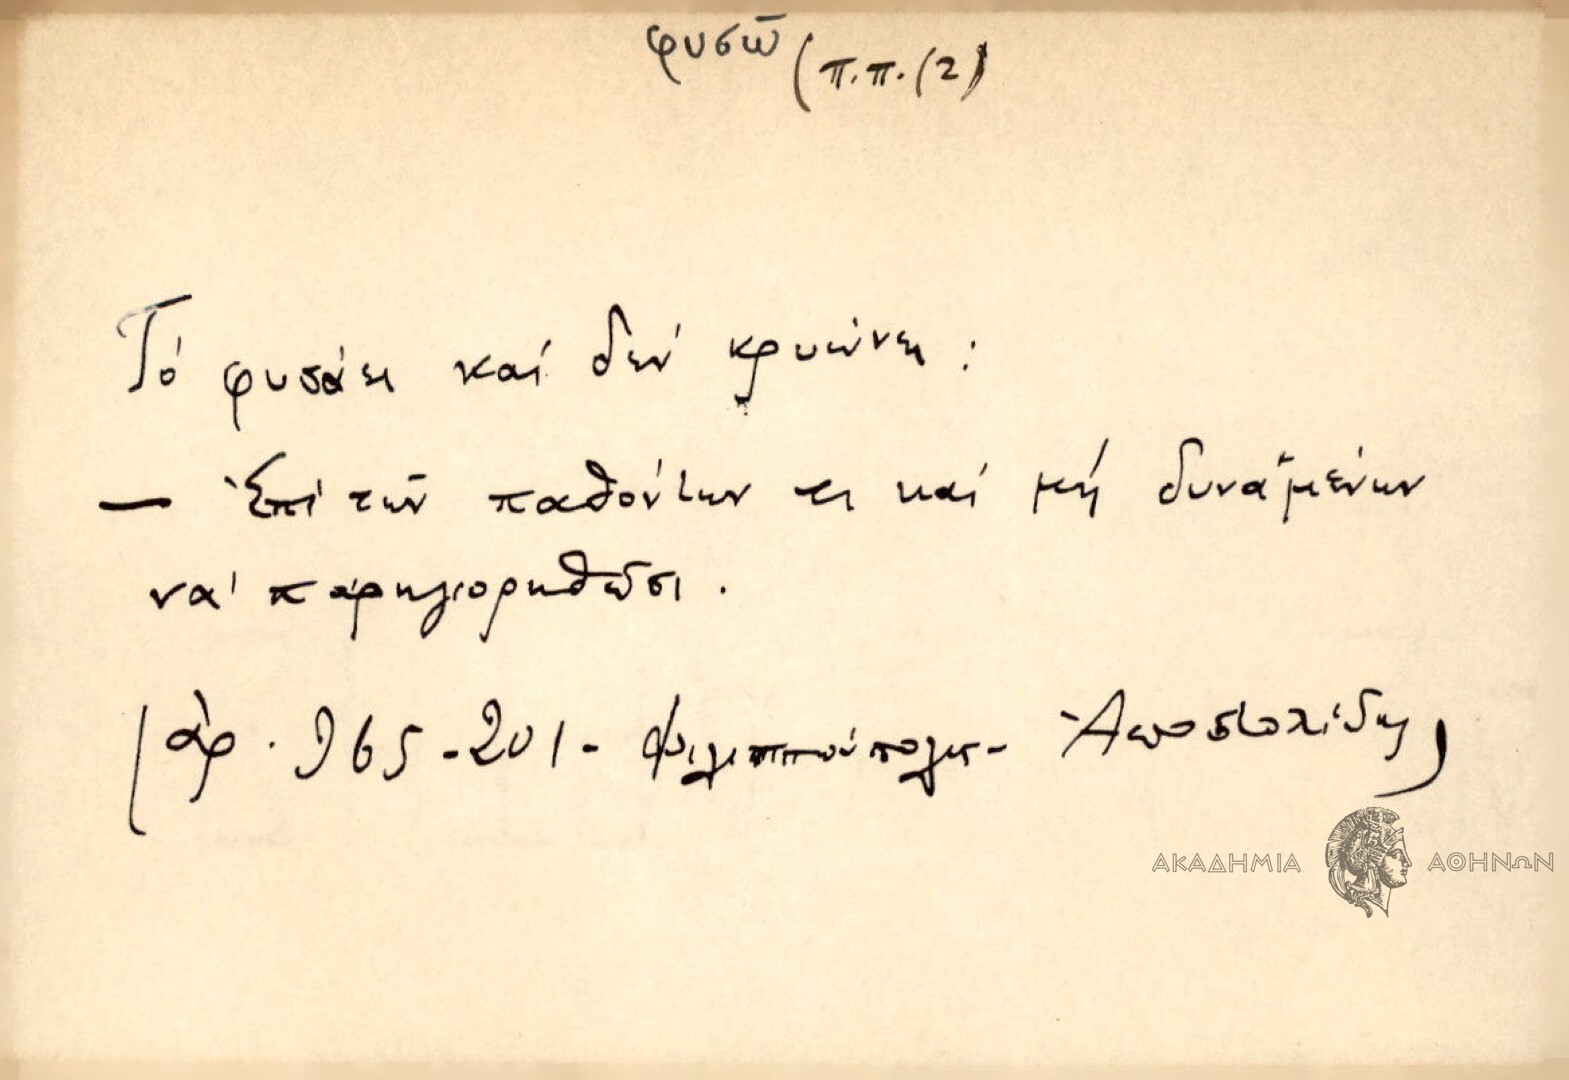 φυσῶ (π.π. (2)
Τό φυσάει καί δέν κρυώνει :
— Ἐπί τῶν παθόντων τι καί μή δυναμένων
νά παρηγορηθῶσι .
(ἀρ. 965 - 201 - Φιλιππούπολις - Ἀποστολίδης)
ΑΚΑΔΗΜΙΑ ΑΘΗΝΩΝ